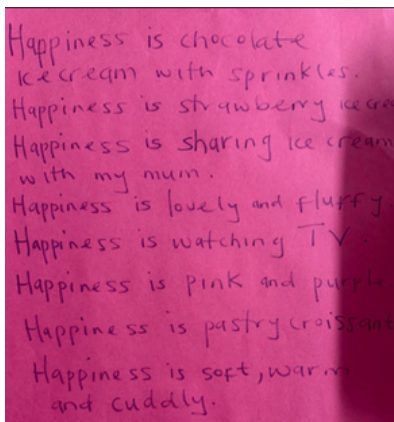 Happiness is chocolate
icecream with sprinkles.
Happiness is strawberry ice crea
Happiness is sharing ice cream
with my mum.
Happiness is lovely and fluffy.
Happiness is watching TV.
Happiness is pink and purple.
Happiness is pastry croissant
Happiness is soft, warm
and cuddly.